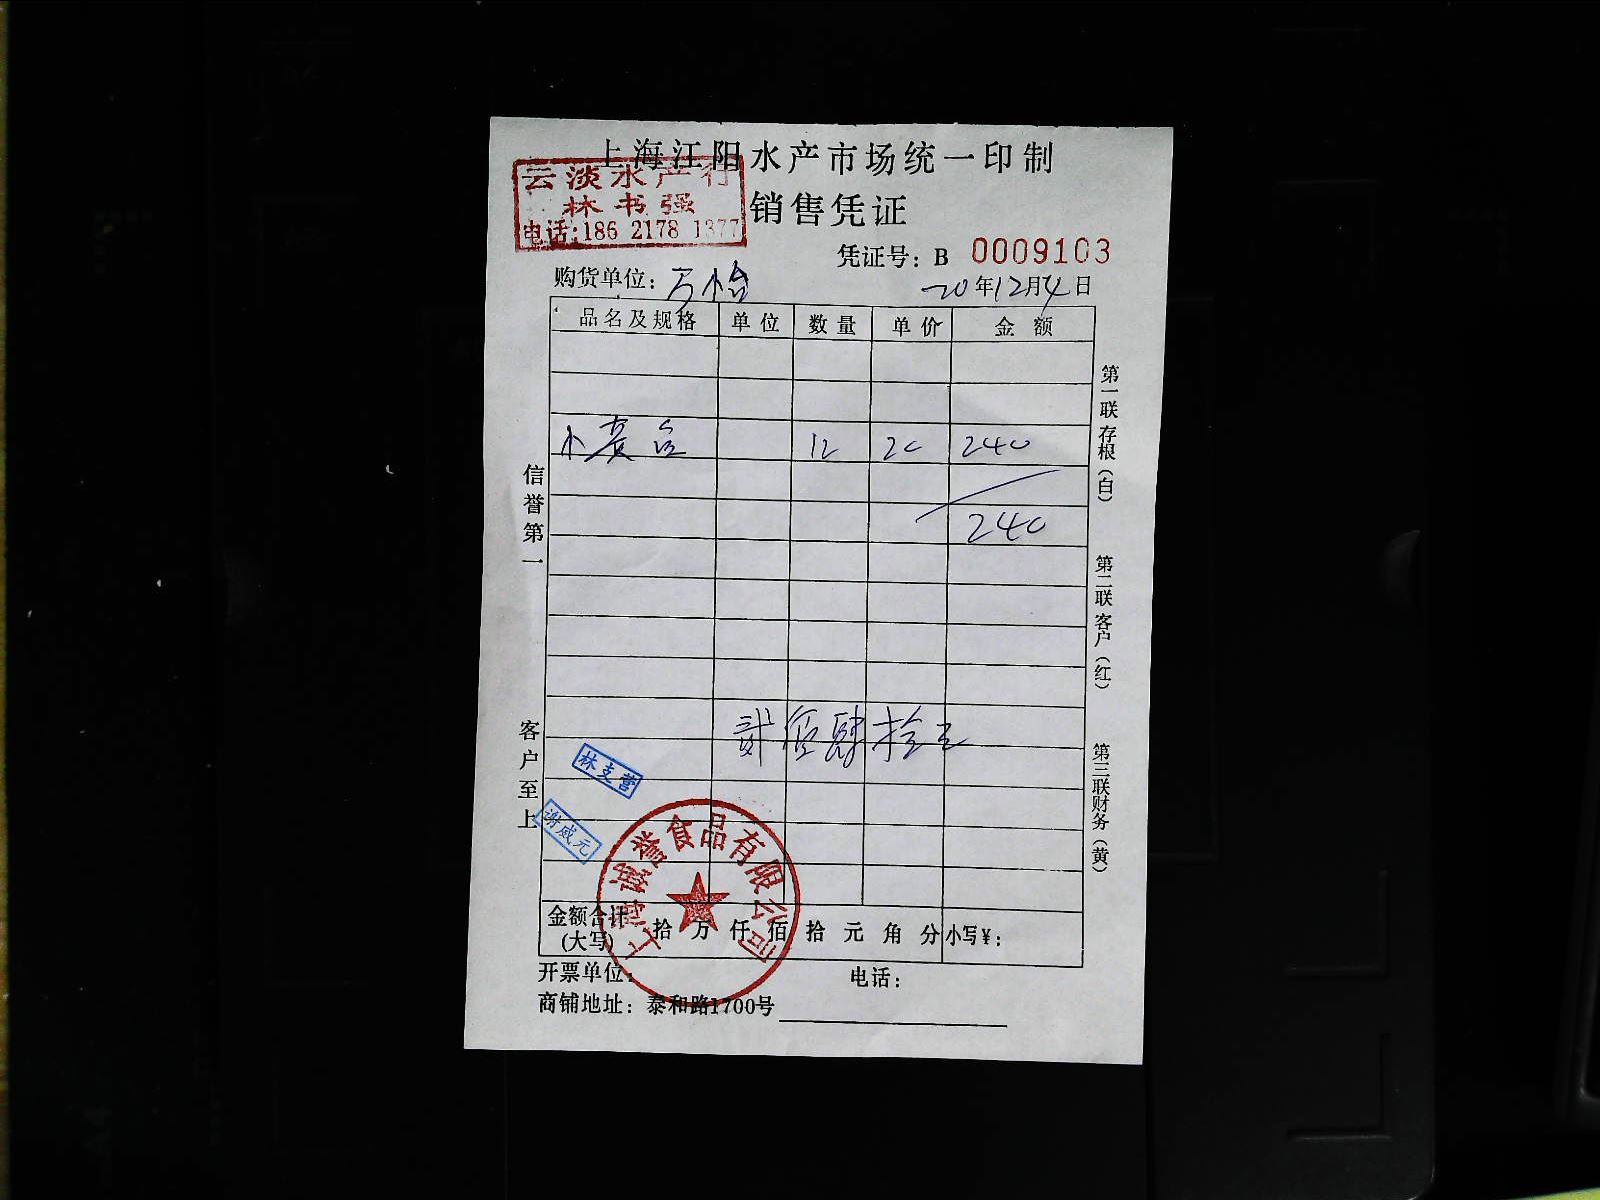 上海江阳水产市场统一印制
云淡水产行
林书强
电话:186 2178 1377
销售凭证
凭证号: B 0009103
购货单位: 万怡
20年12月4日
品名及规格 单位 数量 单价 金额
小黄 12 20 240
240
信誉第一
客户至上
第一联 存根（白）
第二联 客户（红）
第三联 财务（黄）
贰佰肆拾元
林支营
谢威元
上海诚誉食品有限公司
金额合计(大写) 拾 万 仟 佰 拾 元 角 分 小写¥:
开票单位: 电话:
商铺地址: 泰和路1700号